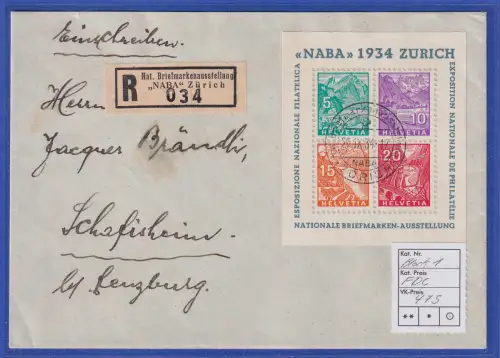 Einschreiben.
R
Nat. Briefmarkenausstellung
„NABA" Zürich
034
Herrn
Jacques Brändli,
Schafisheim
by Lenzburg.
«NABA» 1934 ZÜRICH
ESPOSIZIONE NAZIONALE FILATELICA
EXPOSITION NATIONALE DE PHILATELIE
5
HELVETIA
10
HELVETIA
15
HELVETIA
20
HELVETIA
NABA
NATIONALE BRIEFMARKEN-AUSSTELLUNG
Kat. Nr.
Block 1
Kat. Preis
FDC
VK-Preis
475
** * ⊙